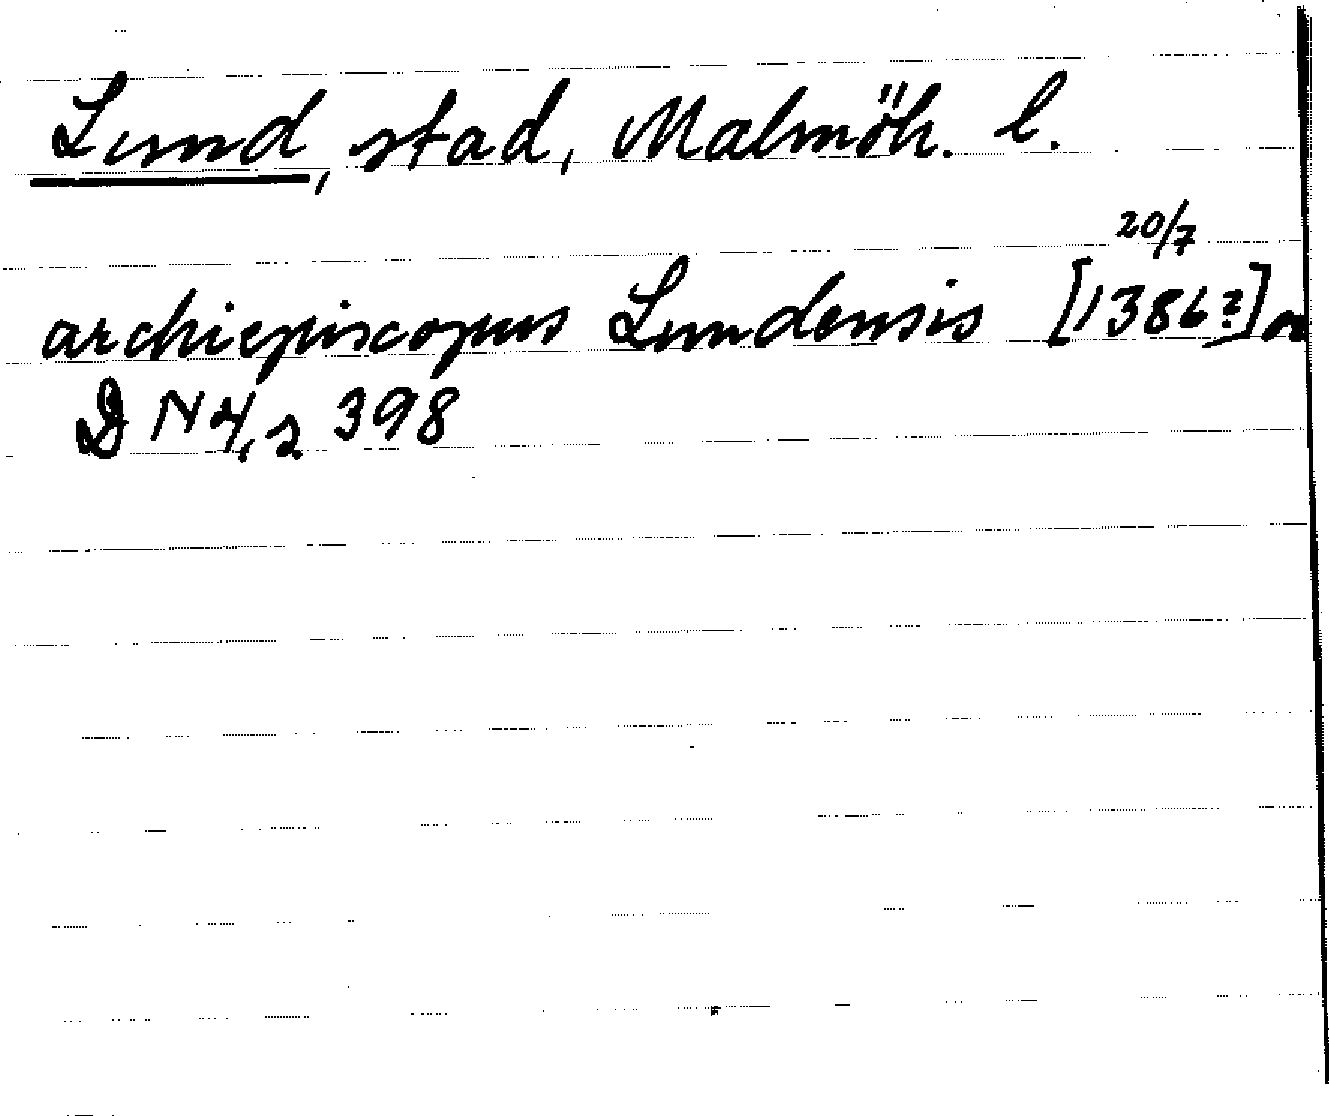 Lund, stad, Malmöh. l.
20/7
archiepiscopus Lundensis [1386?] or
DN 4, s 398